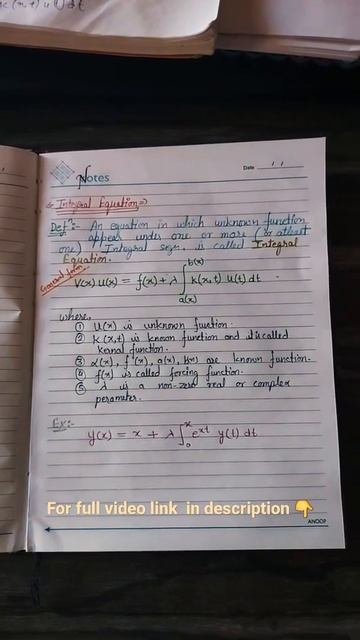 k(x,t) u(t) dt
Notes
Date
Integral Equation
Defⁿ:- An equation in which unknown function
appear under one or more (or atleast
one) Integral sign, is called Integral
Equation.
General form
V(x) u(x) = f(x) + λ ∫_{a(x)}^{b(x)} k(x,t) u(t) dt
where,
① u(x) is unknown function.
② k(x,t) is known function and is called
kernal function.
③ f(x), a(x), b(x) are known function.
④ f(x) is called forcing function.
⑤ λ is a non-zero real or complex
perameter.
Ex:-
y(x) = x + λ ∫_0^x e^{xt} y(t) dt
For full video link in description 👇
ANOOP